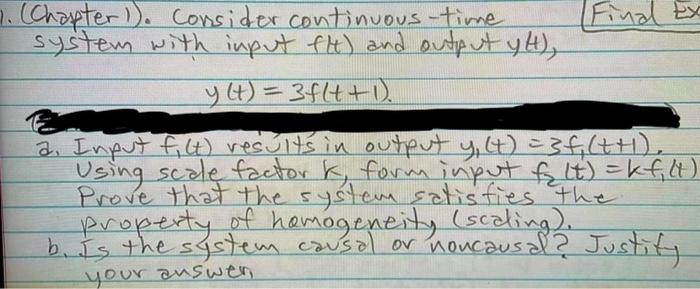 1. (Chapter 1). Consider continuous-time
Final Ex
system with input f(t) and output y(t),
y(t) = 3f(t+1).
a. Input f₁(t) results in output y₁(t) = 3f₁(t+1).
Using scale factor K, form input f₂(t) = kf₁(t)
Prove that the system satisfies the
property of homogeneity (scaling).
b. Is the system causal or noncausal? Justify
your answer.